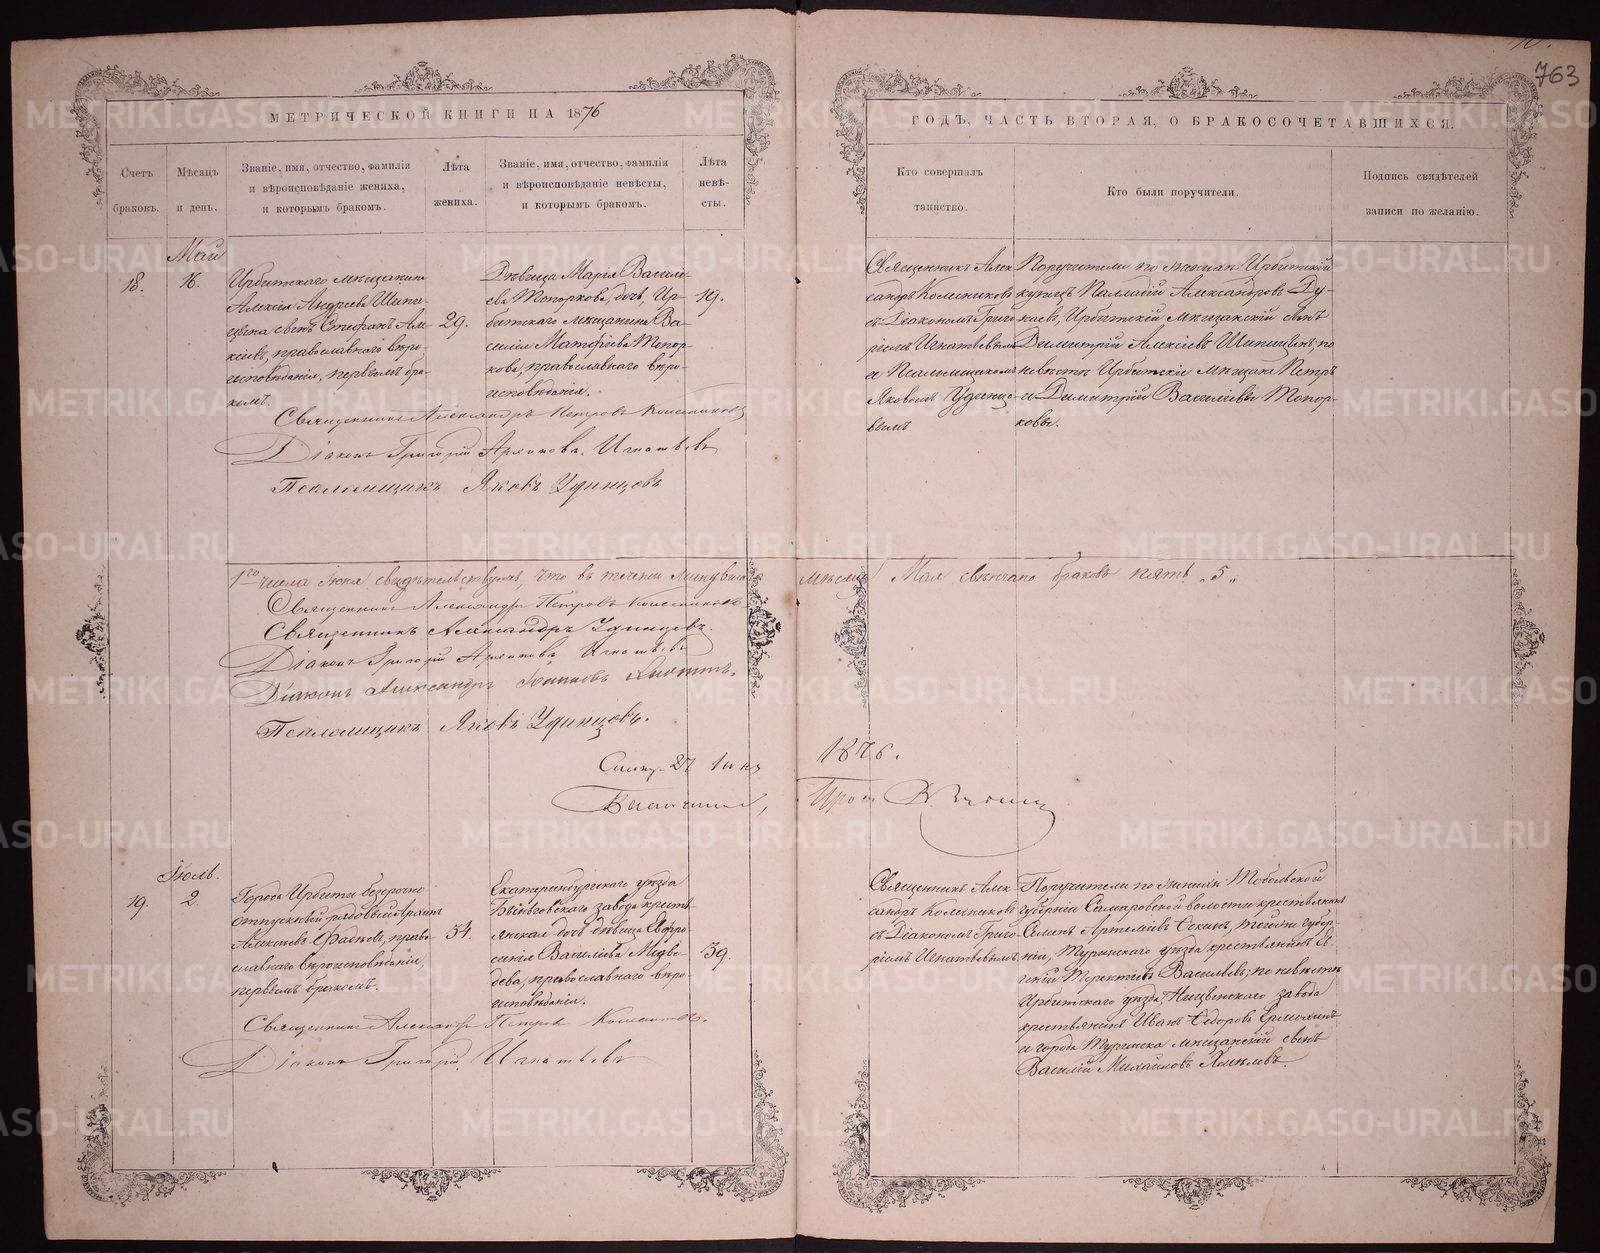 763
МЕТРИЧЕСКОЙ КНИГИ НА 1876
ГОДЪ, ЧАСТЬ ВТОРАЯ, О БРАКОСОЧЕТАВШИХСЯ.
Счетъ
браковъ.
Мѣсяцъ
и день.
Званіе, имя, отчество, фамилія
и вѣроисповѣданіе жениха,
и которымъ бракомъ.
Лѣта
жениха.
Званіе, имя, отчество, фамилія
и вѣроисповѣданіе невѣсты,
и которымъ бракомъ.
Лѣта
невѣ-
сты.
Кто совершалъ
таинство.
Кто были поручители.
Подпись свидѣтелей
записи по желанію.
Май
18.
16.
Ирбитскаго мѣщанина
Алексѣя Андреева Шипи-
цына сынъ Епифанъ Ал-
ксіевъ, православнаго вѣро-
исповѣданія, первымъ бра-
комъ.
29.
Дѣвица Марія Василь-
ева Топоркова, дочь, Ир-
битскаго мѣщанина Ва-
силія Матфіева Топор-
кова, православнаго вѣро-
исповѣданія.
19.
Священникъ Алек
сандръ Колесниковъ
съ Діакономъ Григо
ріемъ Игнатьевымъ
и Псаломщикомъ
Яковомъ Удинцо-
вымъ
Поручители по женихѣ Ирбитскій
купецъ Палладій Александровъ Ду-
каевъ, Ирбитскій мѣщанскій сынъ
Димитрій Алексіевъ Шипицынъ; по
невѣстѣ Ирбитскіе мѣщане Петръ
и Димитрій Василіевы Топор-
ковы.
Священникъ Александръ Петровъ Колесниковъ
Діаконъ Григорій Игнатьевъ
Псаломщикъ Яковъ Удинцовъ
1го числа Іюня свидѣтельствуемъ, что въ теченіи минувшаго мѣсяца Мая свѣнчано браковъ пять „5„
Священникъ Александръ Петровъ Колесниковъ
Священникъ Александръ Удинцевъ.
Діаконъ Григорій Игнатьевъ
Діаконъ Александръ Іоанновъ
Псаломщикъ Яковъ Удинцовъ.
27 1876.
Іюль.
19.
2.
Города Ирбити безсрочно
отпускный рядовый
Алексѣевъ право-
славнаго вѣроисповѣданія,
первымъ бракомъ.
54.
Екатеринбургскаго уѣзда
Быньговскаго завода кресть
янская дочь дѣвица Евфро
синія Василіева Медвѣ-
дева, православнаго вѣро-
исповѣданія.
39.
Священникъ Алек
сандръ Колесниковъ
съ Діакономъ Григо-
ріемъ Игнатьевымъ
Поручители по женихѣ Тобольской
губерніи Самаровской волости крестьянинъ
Семенъ Артеміевъ той же губер-
ніи, Туринскаго уѣзда крестьянинъ
Василіевъ; по невѣстѣ
Ирбитскаго уѣзда, Ницинскаго завода
крестьянинъ Иванъ Ѳедоровъ Ермохинъ
и города Туринска мѣщанскій сынъ
Василій Михайловъ
Священникъ Александръ Петровъ Колесниковъ.
Діаконъ Григорій Игнатьевъ
METRIKI.GASO-URAL.RU